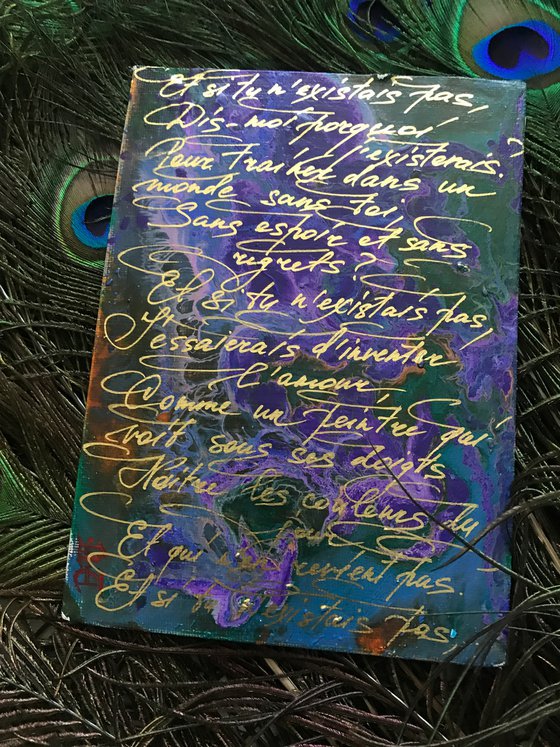 Et si tu n'existais pas,
Dis-moi porquoi
j'existerais?
Pour traîner dans un
monde sans toi,
Sans espoir et sans
regrets?
Et si tu n'existais pas,
J'essaierais d'inventer
l'amour,
Comme un peintre qui
voit sous ses doigts
Naître les couleurs du
jour
Et qui n'en revient pas.
Et si tu n'existais pas,